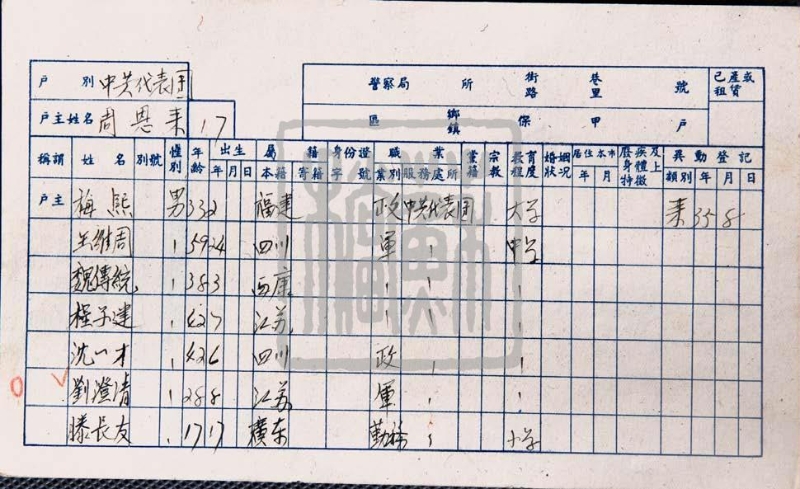 戶別 中共代表團
警察局 所 街路 巷里 號
已產或租賃
戶主姓名 周恩来 17
區 鄉鎮 保 甲 戶
稱謂 姓名 別號 性別 年齡 出生年月日 屬籍 本籍 寄籍 身份證字號 職業 業別 服務處所 黨籍 宗教 教育程度 婚姻狀況 居住本市年月 廢疾及身體上特徵 異動登記 類別年月日
戶主 梅熙 男 33 2 福建 政 中共代表團 大学 来 35 8
王維周 59 24 四川 軍 中学
魏傳統 38 3 西康
程子建 42 7 江苏
沈一才 42 6 四川 政
劉澄清 28 8 江苏 軍
滕長友 17 17 廣东 勤務 小学